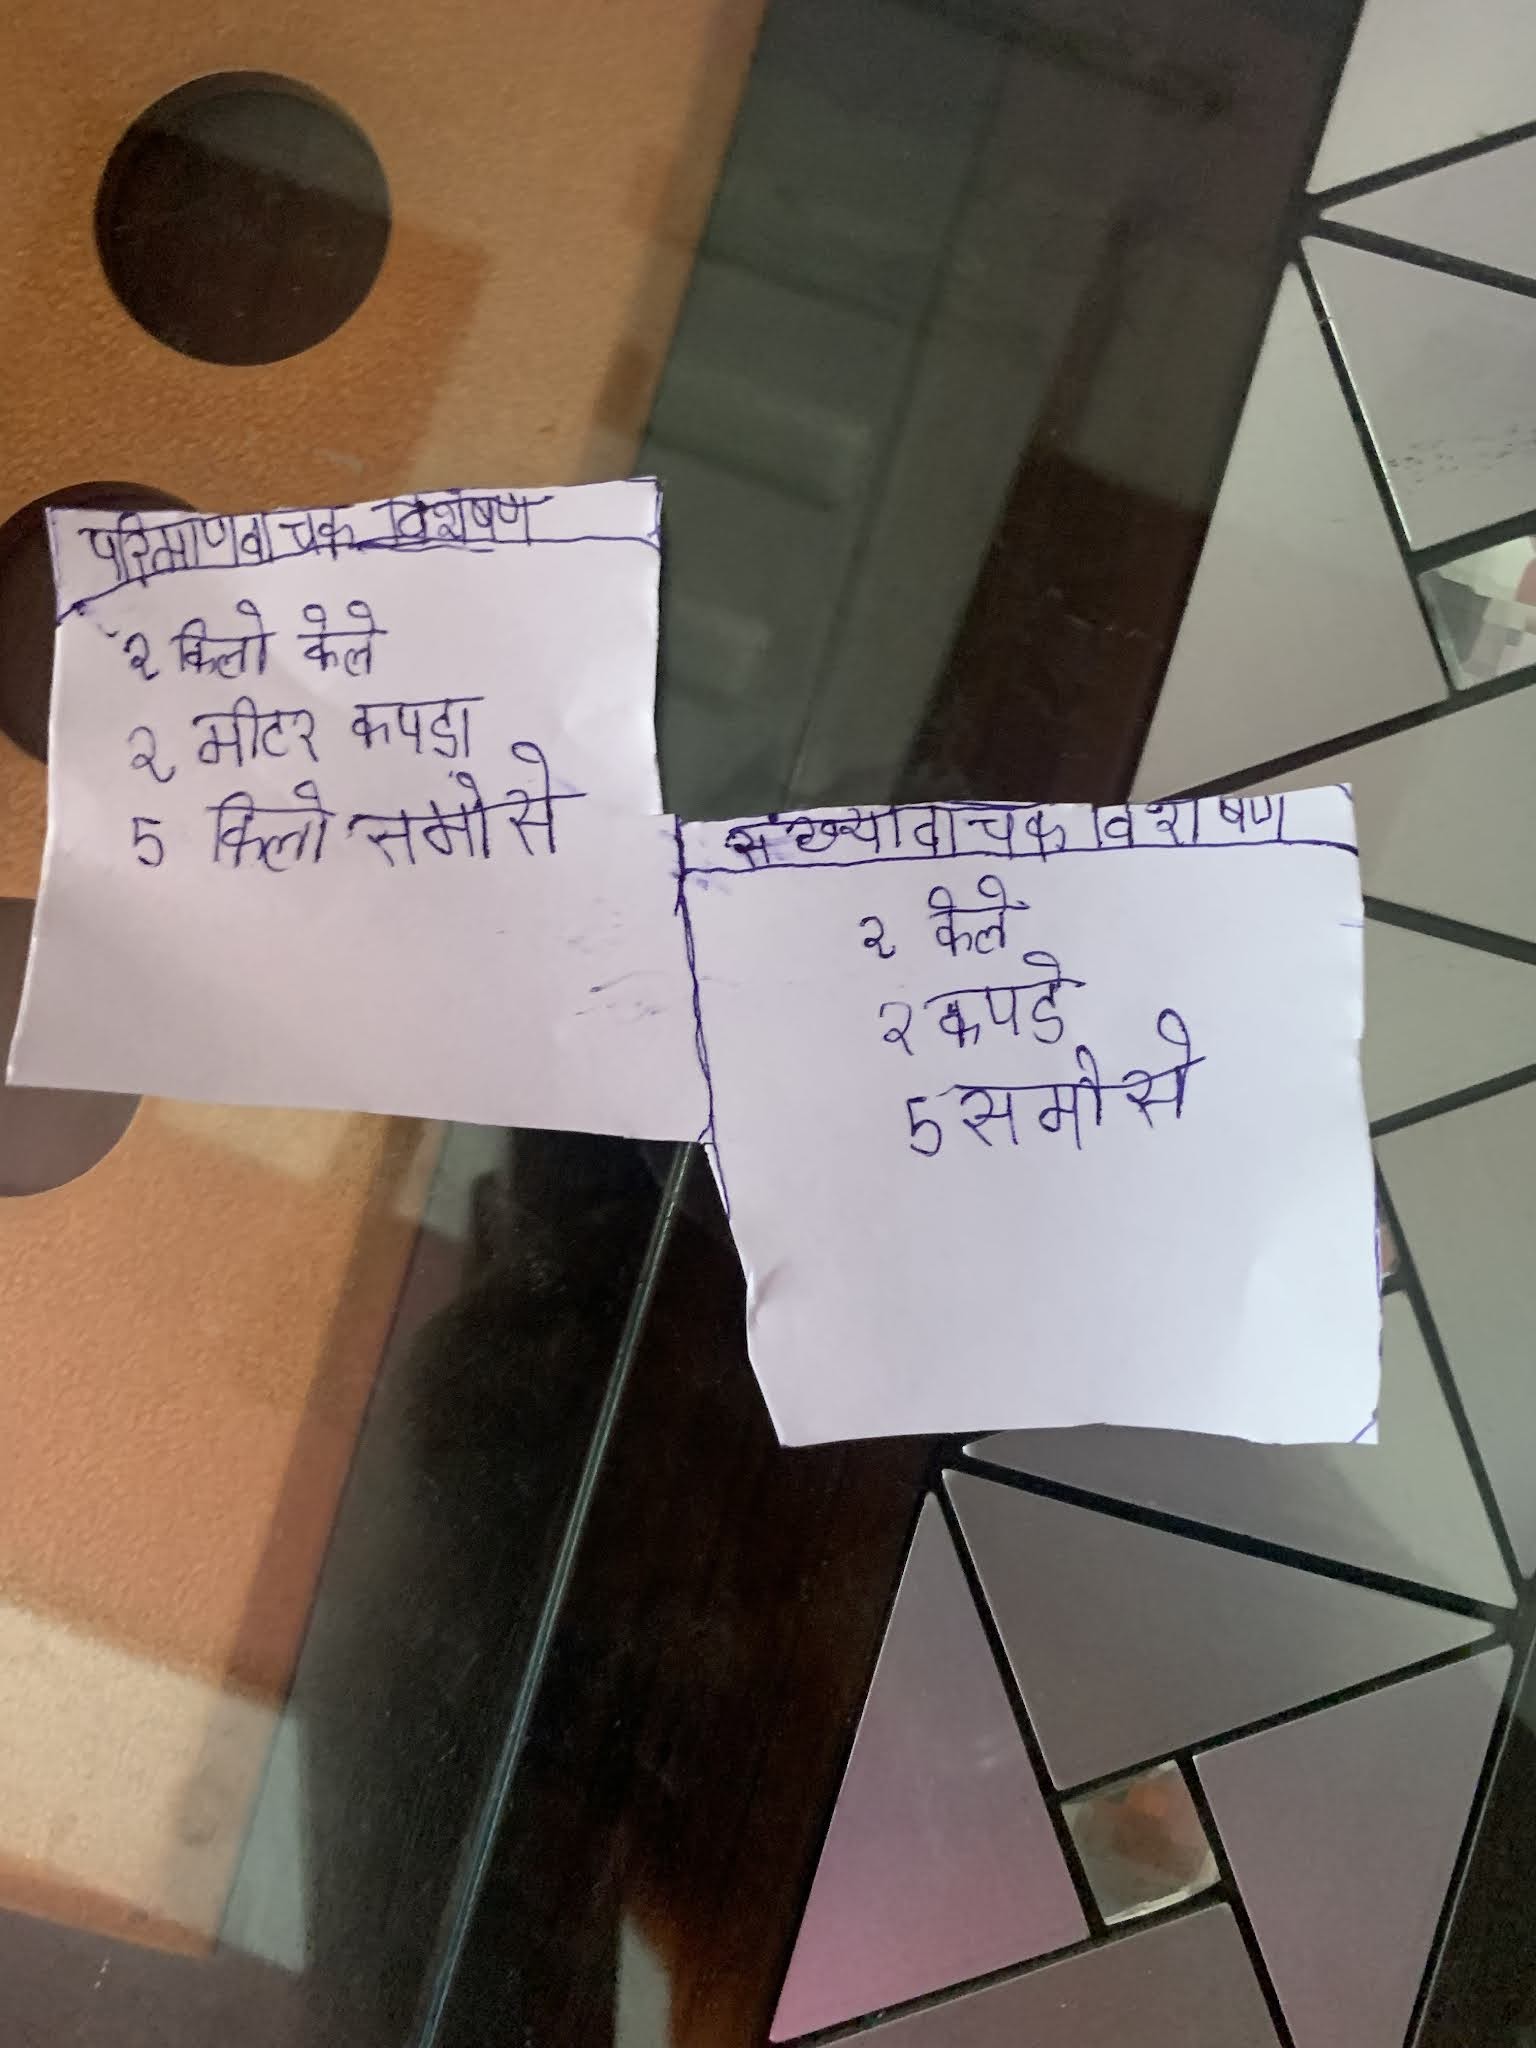 परिमाणवाचक विशेषण
२ किलो केले
२ मीटर कपडा
5 किलो समोसे
संख्यावाचक विशेषण
२ केले
२ कपडे
5 समोसे